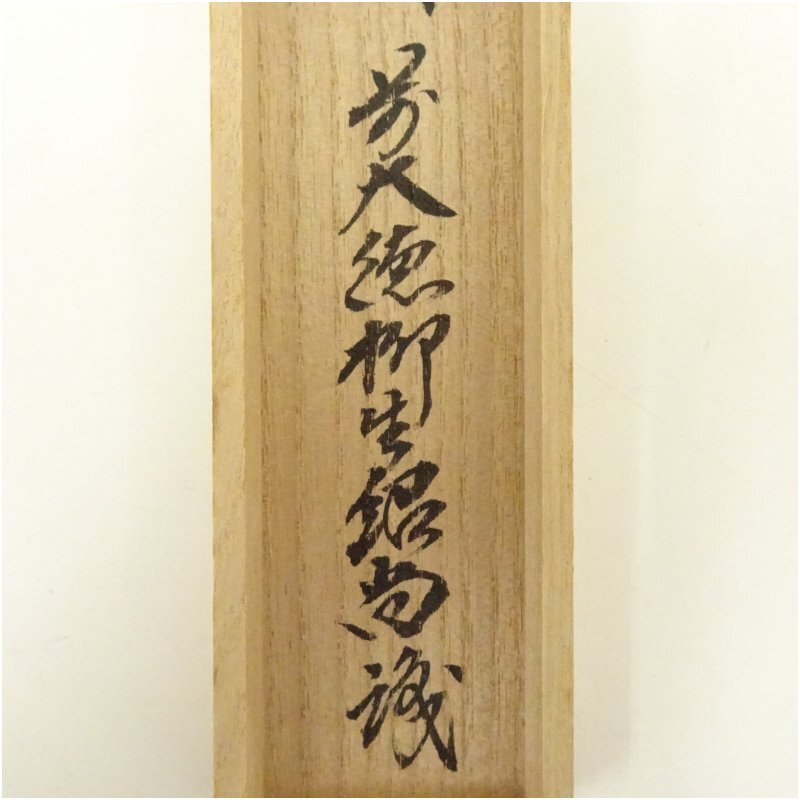 前大徳柳生紹尚識